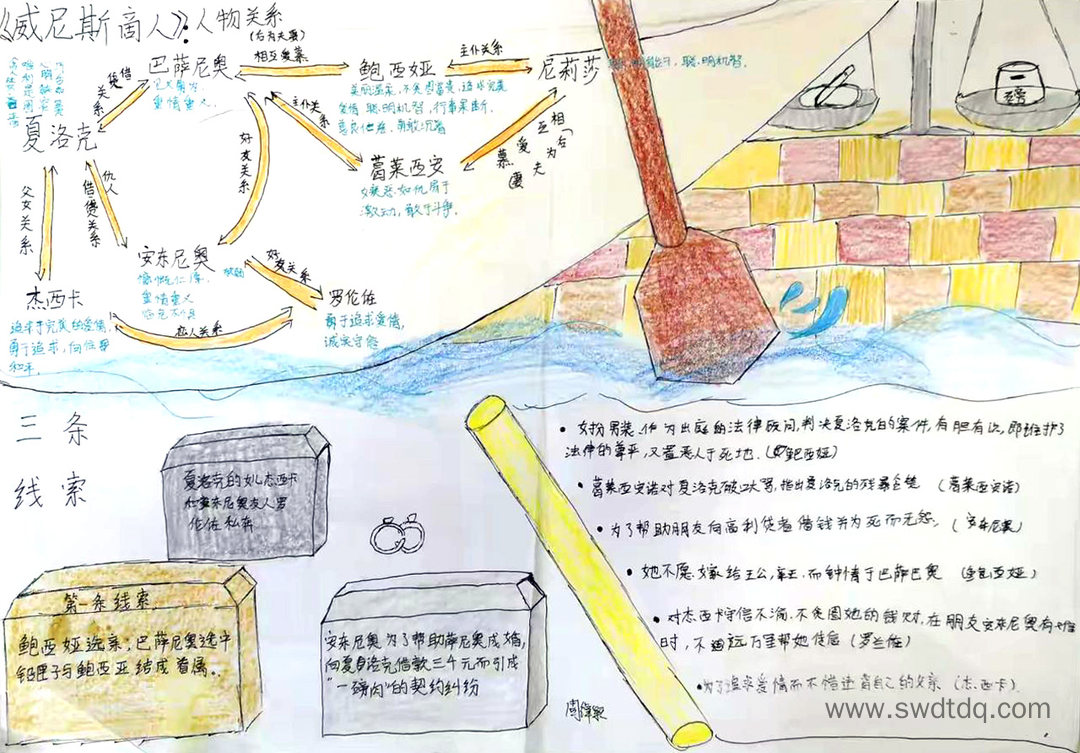 《威尼斯商人》：人物关系
(后为夫妻)
相互爱慕
主仆关系
借贷关系
巴萨尼奥
重情重义
鲍西娅
尼莉莎
聪明机智。
夏洛克
主仆关系
好友关系
葛莱西安
嫉恶如仇 勇于
激动，敢于斗争。
互相爱慕
(后为夫妻)
父女关系
仇人
借贷关系
安东尼奥
慷慨仁厚
重情重义
好友关系
杰西卡
恋人关系
罗伦佐
勇于追求爱情，
诚实守信
追求于完美的爱情，
勇于追求，向往
和平。
磅
三条
线索
夏洛克的女儿杰西卡
和安东尼奥友人罗
伦佐私奔
第一条线索
鲍西娅选亲；巴萨尼奥选中
铅匣子与鲍西亚结成眷属。
安东尼奥为了帮助萨尼奥成婚，
向夏洛克借款三千元而引成
“一磅肉”的契约纠纷
• 女扮男装、作为出庭的法律顾问，判决夏洛克的案件，有胆有识，即维护了
法律的尊严，又置恶人于死地。(鲍西娅)
• 葛莱西安诺对夏洛克破口大骂，指出夏洛克的残暴贪婪 (葛莱西安诺)
• 为了帮助朋友向高利贷者借钱并为死而无怨。(安东尼奥)
• 她不愿嫁给王公，亲王，而钟情于巴萨巴奥 (鲍西娅)
• 对杰西卡守信不渝，不贪图她的钱财，在朋友安东尼奥有难
时，不迢远万里帮她传信 (罗兰佐)
• 为了追求爱情而不惜违背自己的父亲 (杰西卡)
www.swdtdq.com